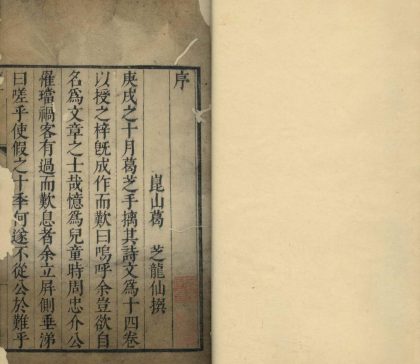 序
崑山葛 芝龍仙撰
庚戌之十月葛芝手擿其詩文為十四卷
以授之梓旣成作而歎曰嗚呼余豈欲自
名為文章之士哉憶為兒童時周忠介公
罹璫禍客有過而歎息者余立屏側垂涕
曰嗟乎使假之十年何遂不從公於難乎